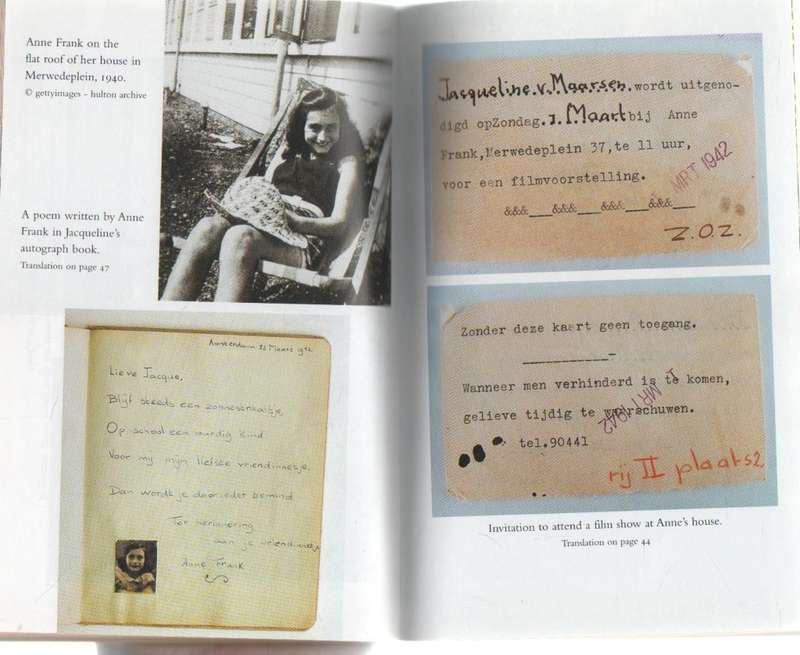 Anne Frank on the
flat roof of her house in
Merwedeplein, 1940.
© gettyimages – hulton archive
A poem written by Anne
Frank in Jacqueline's
autograph book.
Translation on page 47
Amsterdam 23 Maart
Lieve Jacque,
Blijf steeds een zonnestraaltje,
Op school een aardig kind
Voor mij mijn liefste vriendinnetje,
Dan wordt je door ieder bemind
Ter herinnering
aan je vriendinnetje
Anne Frank
Jacqueline.v.Maarsen.wordt uitgeno-
digd opZondag.1.Maart bij Anne
Frank,Merwedeplein 37,te 11 uur,
voor een filmvoorstelling.
MRT 1942
&&&___&&&___&&&___&&&___
Z.O.Z.
Zonder deze kaart geen toegang.
Wanneer men verhinderd is te komen,
1 MRT 1942
gelieve tijdig te waarschuwen.
tel.90441
rij II plaats 2
Invitation to attend a film show at Anne's house.
Translation on page 44